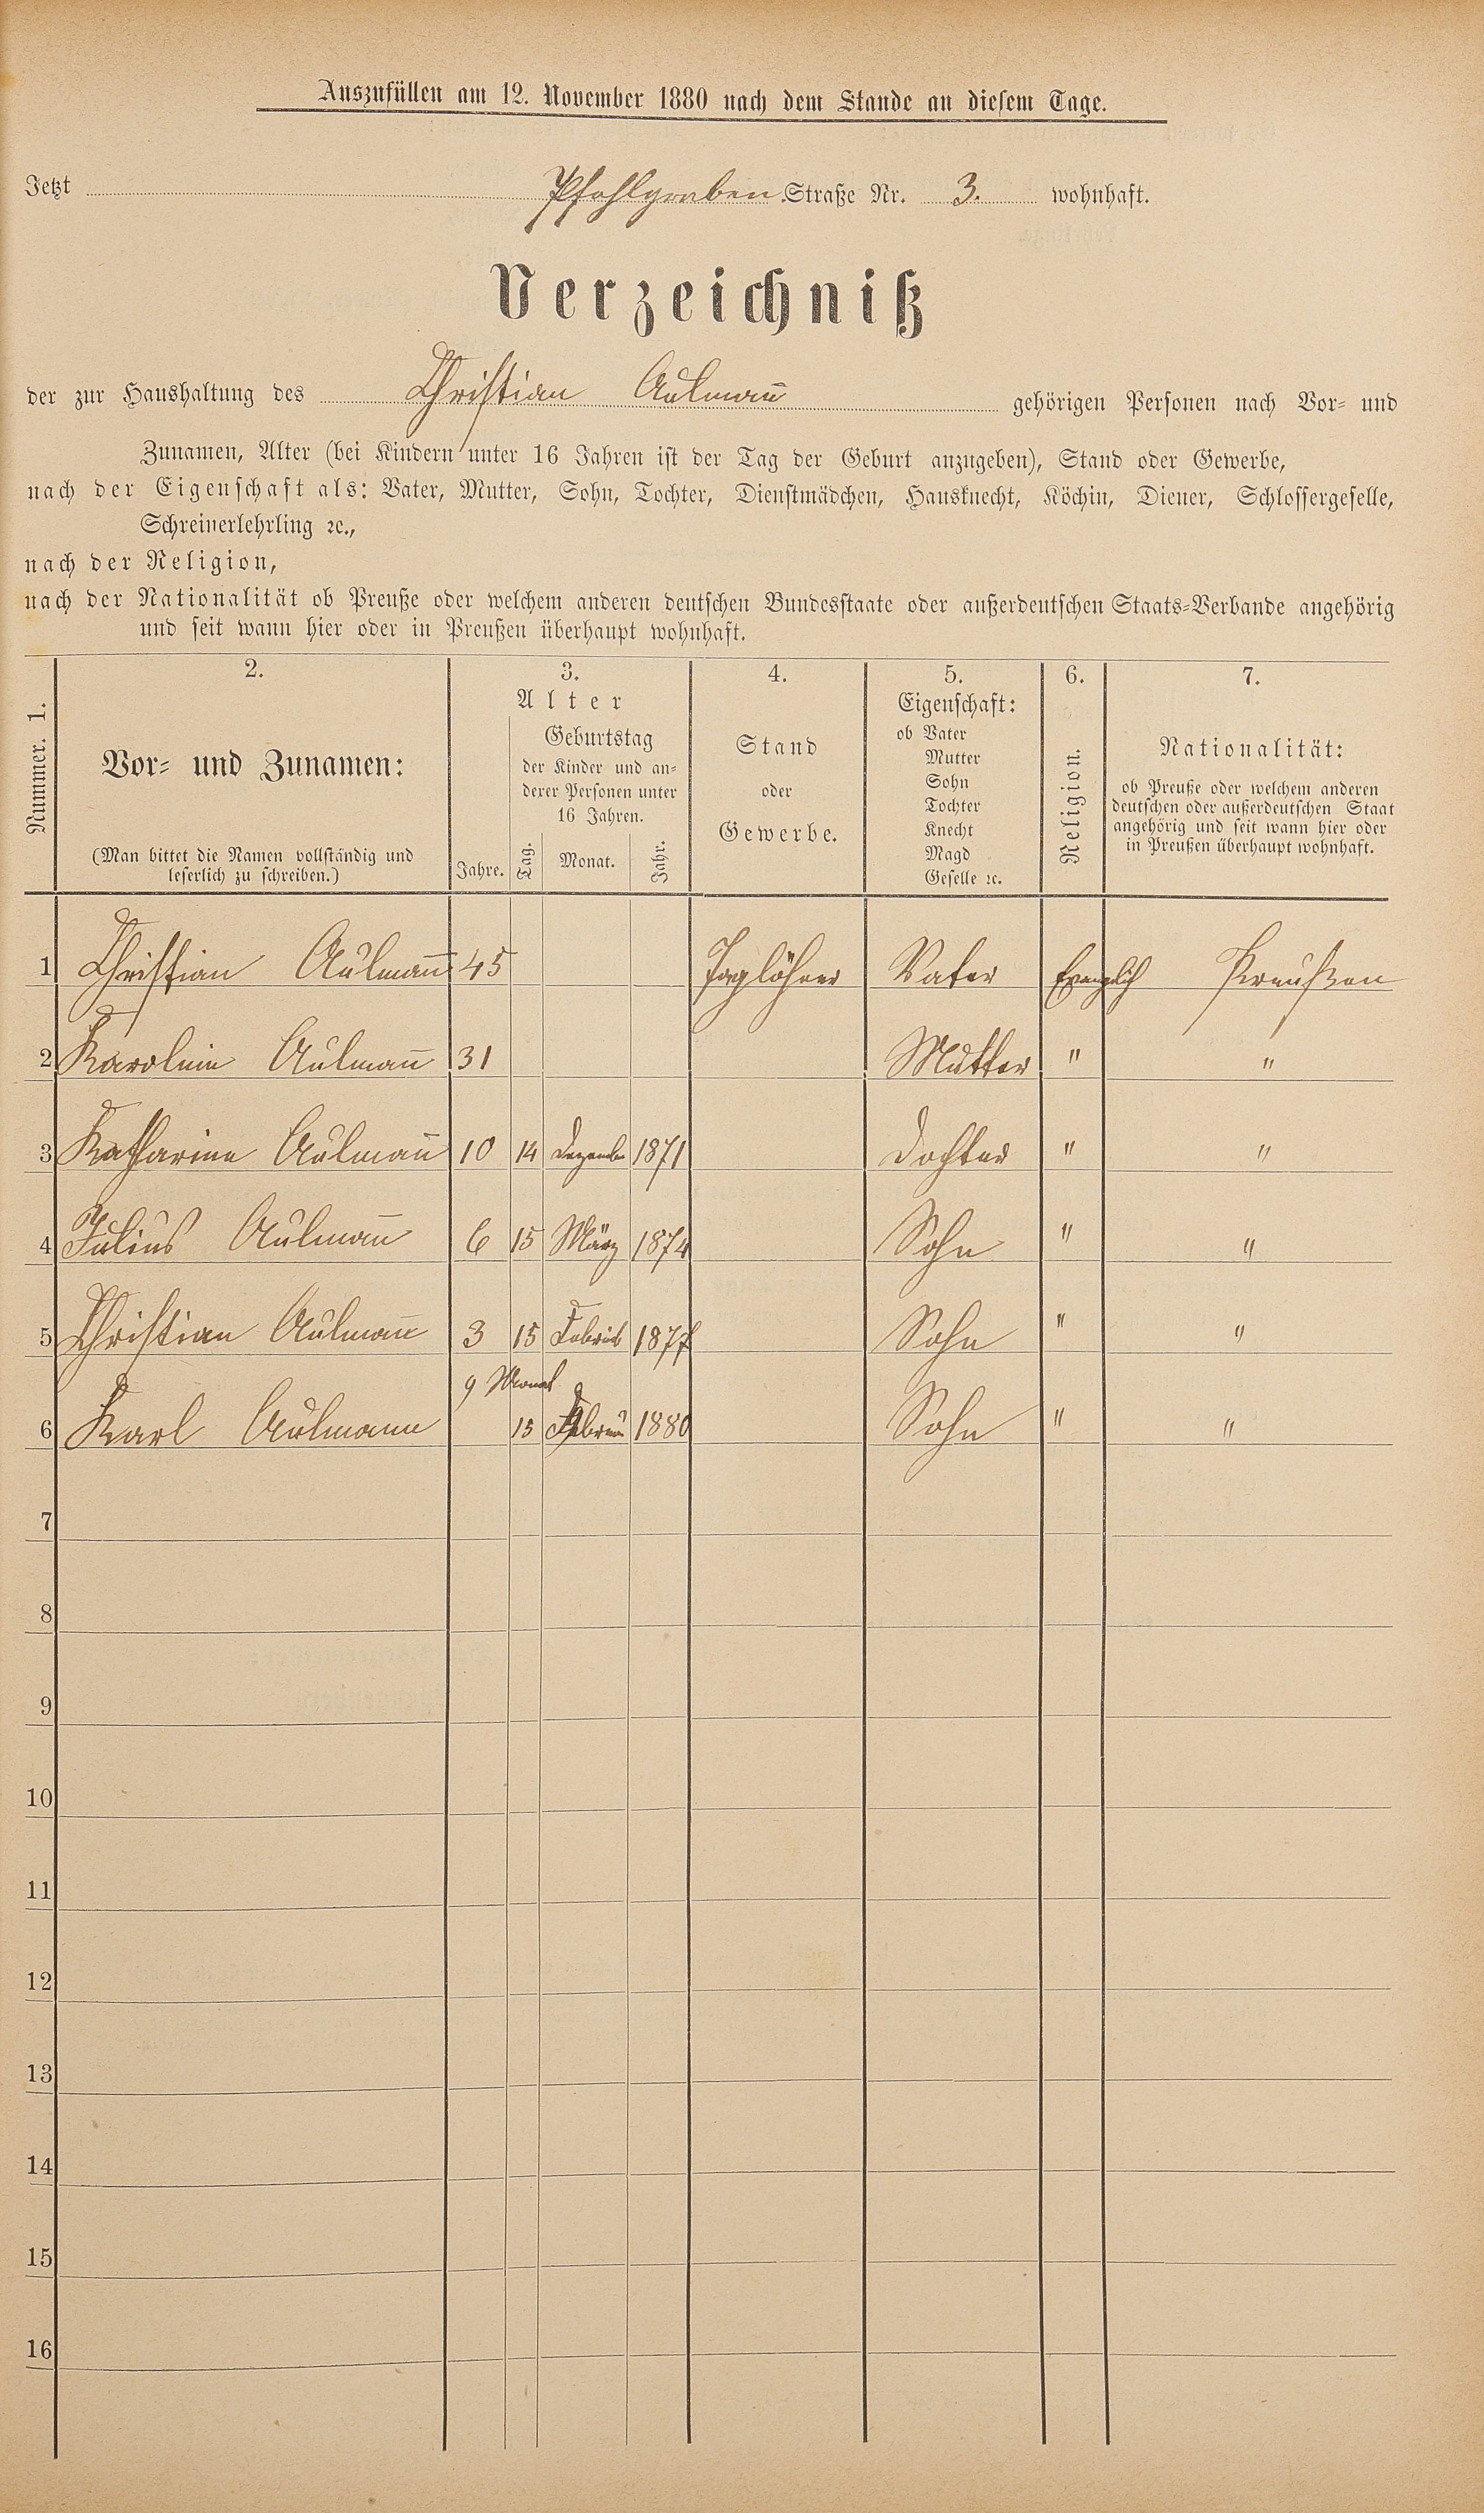 Auszufüllen am 12. November 1880 nach dem Stande an diesem Tage.
Jetzt Pfahlgraben Straße Nr. 3. wohnhaft.
Verzeichniß
der zur Haushaltung des Christian Aulmañ gehörigen Personen nach Vor- und
Zunamen, Alter (bei Kindern unter 16 Jahren ist der Tag der Geburt anzugeben), Stand oder Gewerbe,
nach der Eigenschaft als: Vater, Mutter, Sohn, Tochter, Dienstmädchen, Hausknecht, Köchin, Diener, Schlossergeselle,
Schreinerlehrling ꝛc.,
nach der Religion,
nach der Nationalität ob Preuße oder welchem anderen deutschen Bundesstaate oder außerdeutschen Staats-Verbande angehörig
und seit wann hier oder in Preußen überhaupt wohnhaft.
Nummer. 1.
2.
Vor- und Zunamen:
(Man bittet die Namen vollständig und
leserlich zu schreiben.)
3.
Alter
Jahre.
Geburtstag
der Kinder und an-
derer Personen unter
16 Jahren.
Tag. Monat. Jahr.
4.
Stand
oder
Gewerbe.
5.
Eigenschaft:
ob Vater
Mutter
Sohn
Tochter
Knecht
Magd
Geselle ꝛc.
6.
Religion.
7.
Nationalität:
ob Preuße oder welchem anderen
deutschen oder außerdeutschen Staat
angehörig und seit wann hier oder
in Preußen überhaupt wohnhaft.
1 Christian Aulmañ 45 Taglöhner Vater Evanglich Preußen
2 Karoline Aulmañ 31 Mutter " "
3 Katharine Aulmañ 10 14 Dezember 1871 Dochter " "
4 Julius Aulmañ 6 15 März 1874 Sohn " "
5 Christian Aulmañ 3 15 1877 Sohn " "
9 Monat
6 Karl Aulmann 15 1880 Sohn " "
7
8
9
10
11
12
13
14
15
16